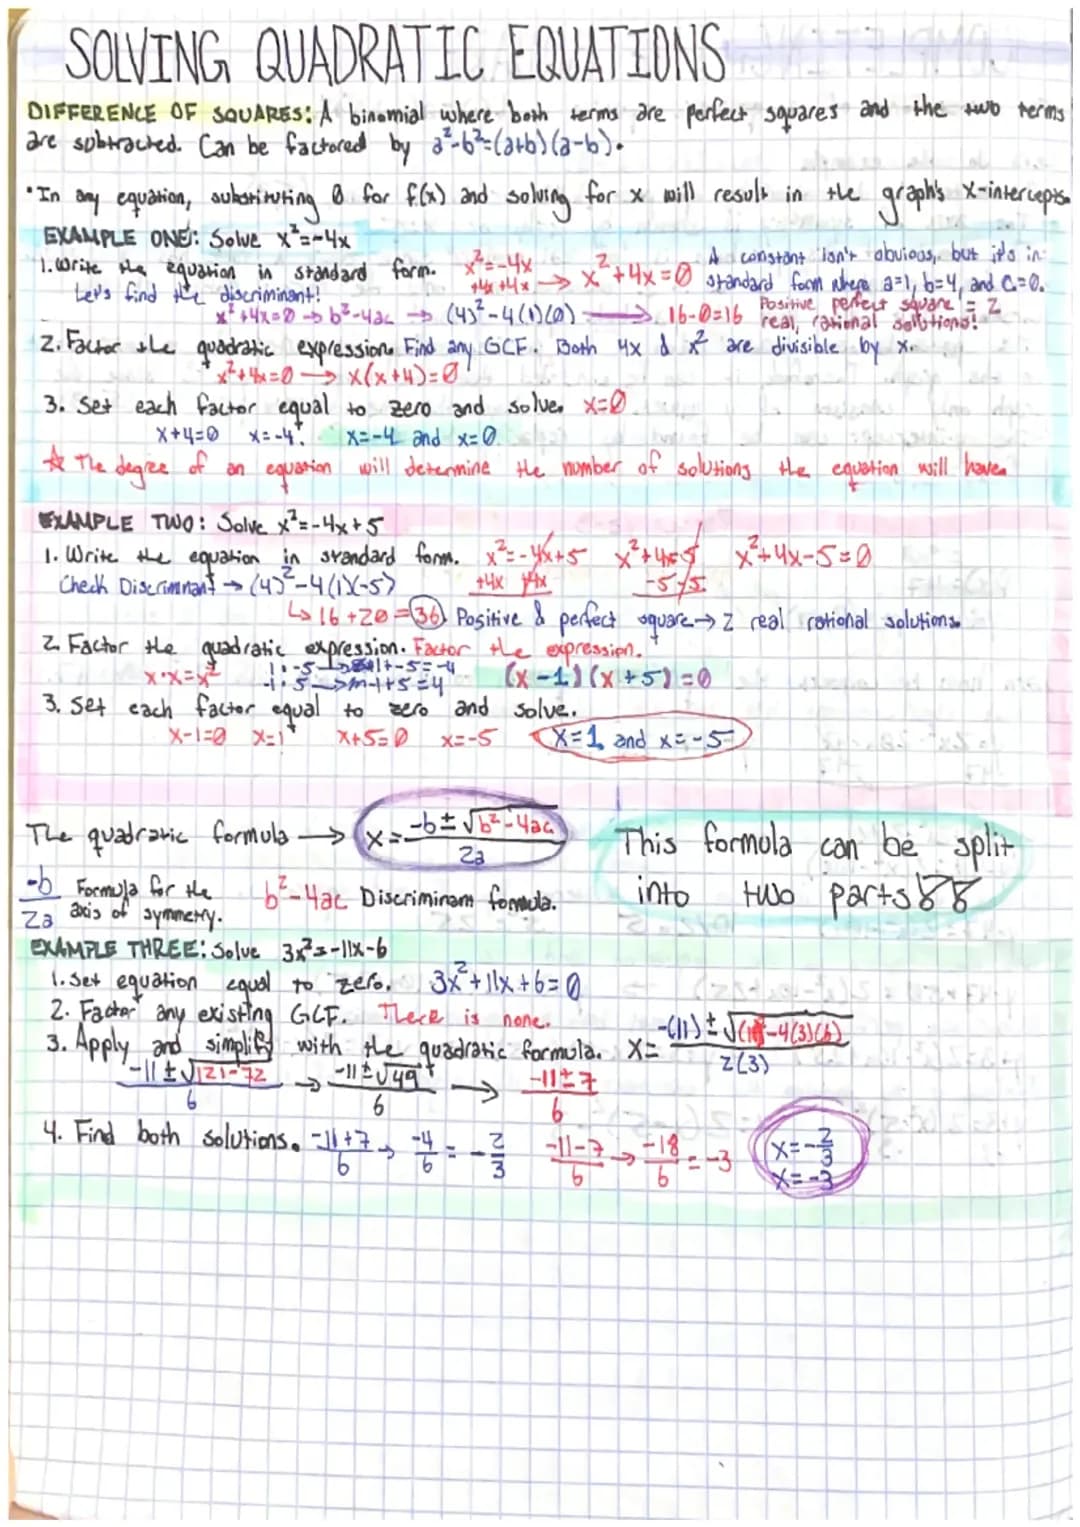 SOLVING QUADRATIC EQUATIONS
DIFFERENCE OF SQUARES: A binomial where both terms are perfect squares and the two terms
are subtracted. Can be factored by a²-b²=(a+b)(a-b).
•In any equation, substituting 0 for f(x) and solving for x will result in the graph's x-intercepts.
EXAMPLE ONE: Solve x²=-4x
1. Write the equation in standard form. x²=-4x → x²+4x=0 A constant isn't obvious, but it's in
+4x +4x standard form where a=1, b=4, and C=0.
Let's find the discriminant!
x²+4x=0 → b²-4ac → (4)²-4(1)(0) → 16-0=16 Positive perfect square = 2
real, rational solutions!
2. Factor the quadratic expression. Find any GCF. Both 4x & x² are divisible by x.
x²+4x=0 → x(x+4)=0
3. Set each factor equal to zero and solve. x=0
x+4=0 x=-4. x=-4 and x=0
☆ The degree of an equation will determine the number of solutions the equation will have.
EXAMPLE TWO: Solve x²=-4x+5
1. Write the equation in standard form. x²=-4x+5 x²+4x=5 x²+4x-5=0
+4x +4x -5 -5
Check Discrimnant → (4)²-4(1)(-5)
↳ 16+20=36 Positive & perfect square → 2 real rational solutions.
2. Factor the quadratic expression. Factor the expression.
x·x=x² 1·-5 → 1+-5=-4 (x-1)(x+5)=0
-1·5 → -1+5=4
3. Set each factor equal to zero and solve.
x-1=0 x=1 x+5=0 x=-5 x=1 and x=-5
The quadratic formula → x=-b±√b²-4ac/2a This formula can be split
into two parts
-b/2a Formula for the axis of symmetry. b²-4ac Discriminant formula.
EXAMPLE THREE: Solve 3x²=-11x-6
1. Set equation equal to zero. 3x²+11x+6=0
2. Factor any existing GCF. There is none.
3. Apply and simplify with the quadratic formula. x=-(11)±√(11)²-4(3)(6)/2(3)
-11±√121-72/6 → -11±√49/6 → -11±7/6
4. Find both solutions. -11+7/6 → -4/6=-2/3 -11-7/6 → -18/6=-3 x=-2/3
x=-3